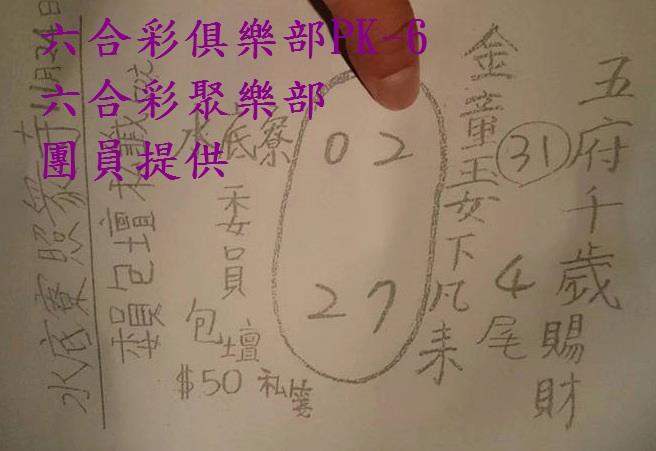 六合彩俱樂部PK-6
六合彩聚樂部
團員提供
五府千歲賜財
31
4尾
金童玉女下凡来
02
27
水底寮
委員
包壇
$50 私簽
包壇
水底寮照象